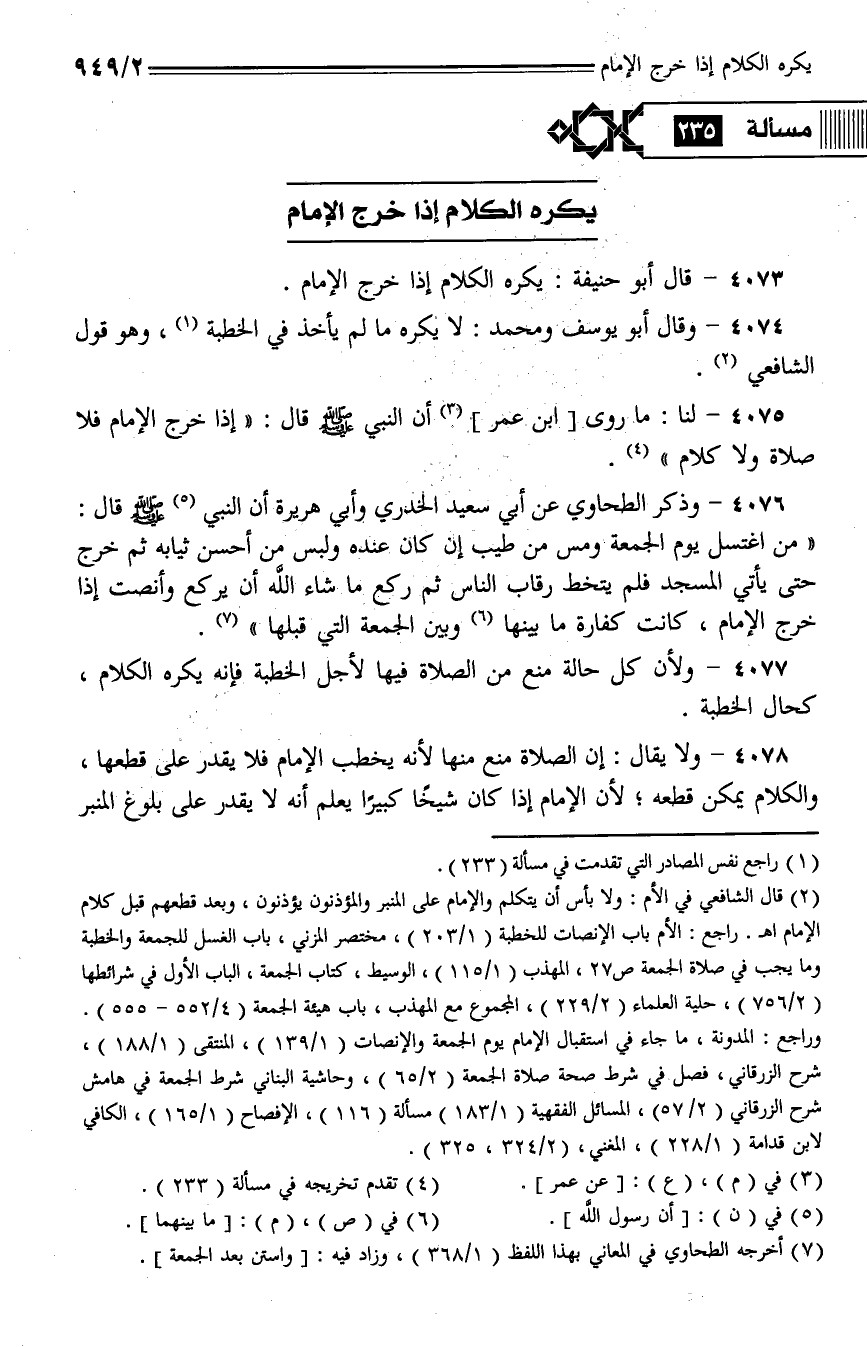 يكره الكلام إذا خرج الإمام ٩٤٩/٢
مسألة ٢٣٥
يكره الكلام إذا خرج الإمام
٤٠٧٣ - قال أبو حنيفة : يكره الكلام إذا خرج الإمام .
٤٠٧٤ - وقال أبو يوسف ومحمد : لا يكره ما لم يأخذ في الخطبة (١) ، وهو قول
الشافعي (٢) .
٤٠٧٥ - لنا : ما روى [ ابن عمر ] (٣) أن النبي ﷺ قال : « إذا خرج الإمام فلا
صلاة ولا كلام » (٤) .
٤٠٧٦ - وذكر الطحاوي عن أبي سعيد الخدري وأبي هريرة أن النبي (٥) ﷺ قال :
« من اغتسل يوم الجمعة ومس من طيب إن كان عنده ولبس من أحسن ثيابه ثم خرج
حتى يأتي المسجد فلم يتخط رقاب الناس ثم ركع ما شاء اللَّه أن يركع وأنصت إذا
خرج الإمام ، كانت كفارة ما بينها (٦) وبين الجمعة التي قبلها » (٧) .
٤٠٧٧ - ولأن كل حالة منع من الصلاة فيها لأجل الخطبة فإنه يكره الكلام ،
كحال الخطبة .
٤٠٧٨ - ولا يقال : إن الصلاة منع منها لأنه يخطب الإمام فلا يقدر على قطعها ،
والكلام يمكن قطعه ؛ لأن الإمام إذا كان شيخًا كبيرًا يعلم أنه لا يقدر على بلوغ المنبر
(١) راجع نفس المصادر التي تقدمت في مسألة (٢٣٣) .
(٢) قال الشافعي في الأم : ولا بأس أن يتكلم والإمام على المنبر والمؤذنون يؤذنون ، وبعد قطعهم قبل كلام
الإمام اهـ . راجع : الأم باب الإنصات للخطبة ( ٢٠٣/١ ) ، مختصر المزني ، باب الغسل للجمعة والخطبة
وما يجب في صلاة الجمعة ص٢٧ ، المهذب ( ١١٥/١ ) ، الوسيط ، كتاب الجمعة ، الباب الأول في شرائطها
( ٧٥٦/٢ ) ، حلية العلماء ( ٢٢٩/٢ ) ، المجموع مع المهذب ، باب هيئة الجمعة ( ٥٥٢/٤ - ٥٥٥ ) .
وراجع : المدونة ، ما جاء في استقبال الإمام يوم الجمعة والإنصات ( ١٣٩/١ ) ، المنتقى ( ١٨٨/١ ) ،
شرح الزرقاني ، فصل في شرط صحة صلاة الجمعة ( ٦٥/٢ ) ، وحاشية البناني شرط الجمعة في هامش
شرح الزرقاني ( ٥٧/٢) ، المسائل الفقهية ( ١٨٣/١ ) مسألة ( ١١٦ ) ، الإفصاح ( ١٦٥/١ ) ، الكافي
لابن قدامة ( ٢٢٨/١ ) ، المغني ، ( ٣٢٤/٢ ، ٣٢٥ ) .
(٣) في ( م ) ، ( ع ) : [ عن عمر ] . (٤) تقدم تخريجه في مسألة ( ٢٣٣ ) .
(٥) في ( ن ) : [ أن رسول اللَّه ] . (٦) في ( ص ) ، ( م ) : [ ما بينهما ] .
(٧) أخرجه الطحاوي في المعاني بهذا اللفظ ( ٣٦٨/١ ) ، وزاد فيه : [ واستن بعد الجمعة ] .